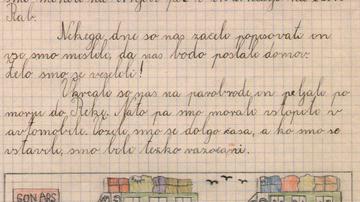 Rab.
Nekega dne so nas začeli popisovati in
vse smo mislili, da nas bodo poslali domov
zelo smo se veselili!
Vkrcali so nas na parobrode in peljali po
morju do Reke. Nato pa smo morali vstopiti v
avtomobile. Vozili smo se dolgo časa, a ko smo se
vstavili, smo bili težko razočarani.
SONARS